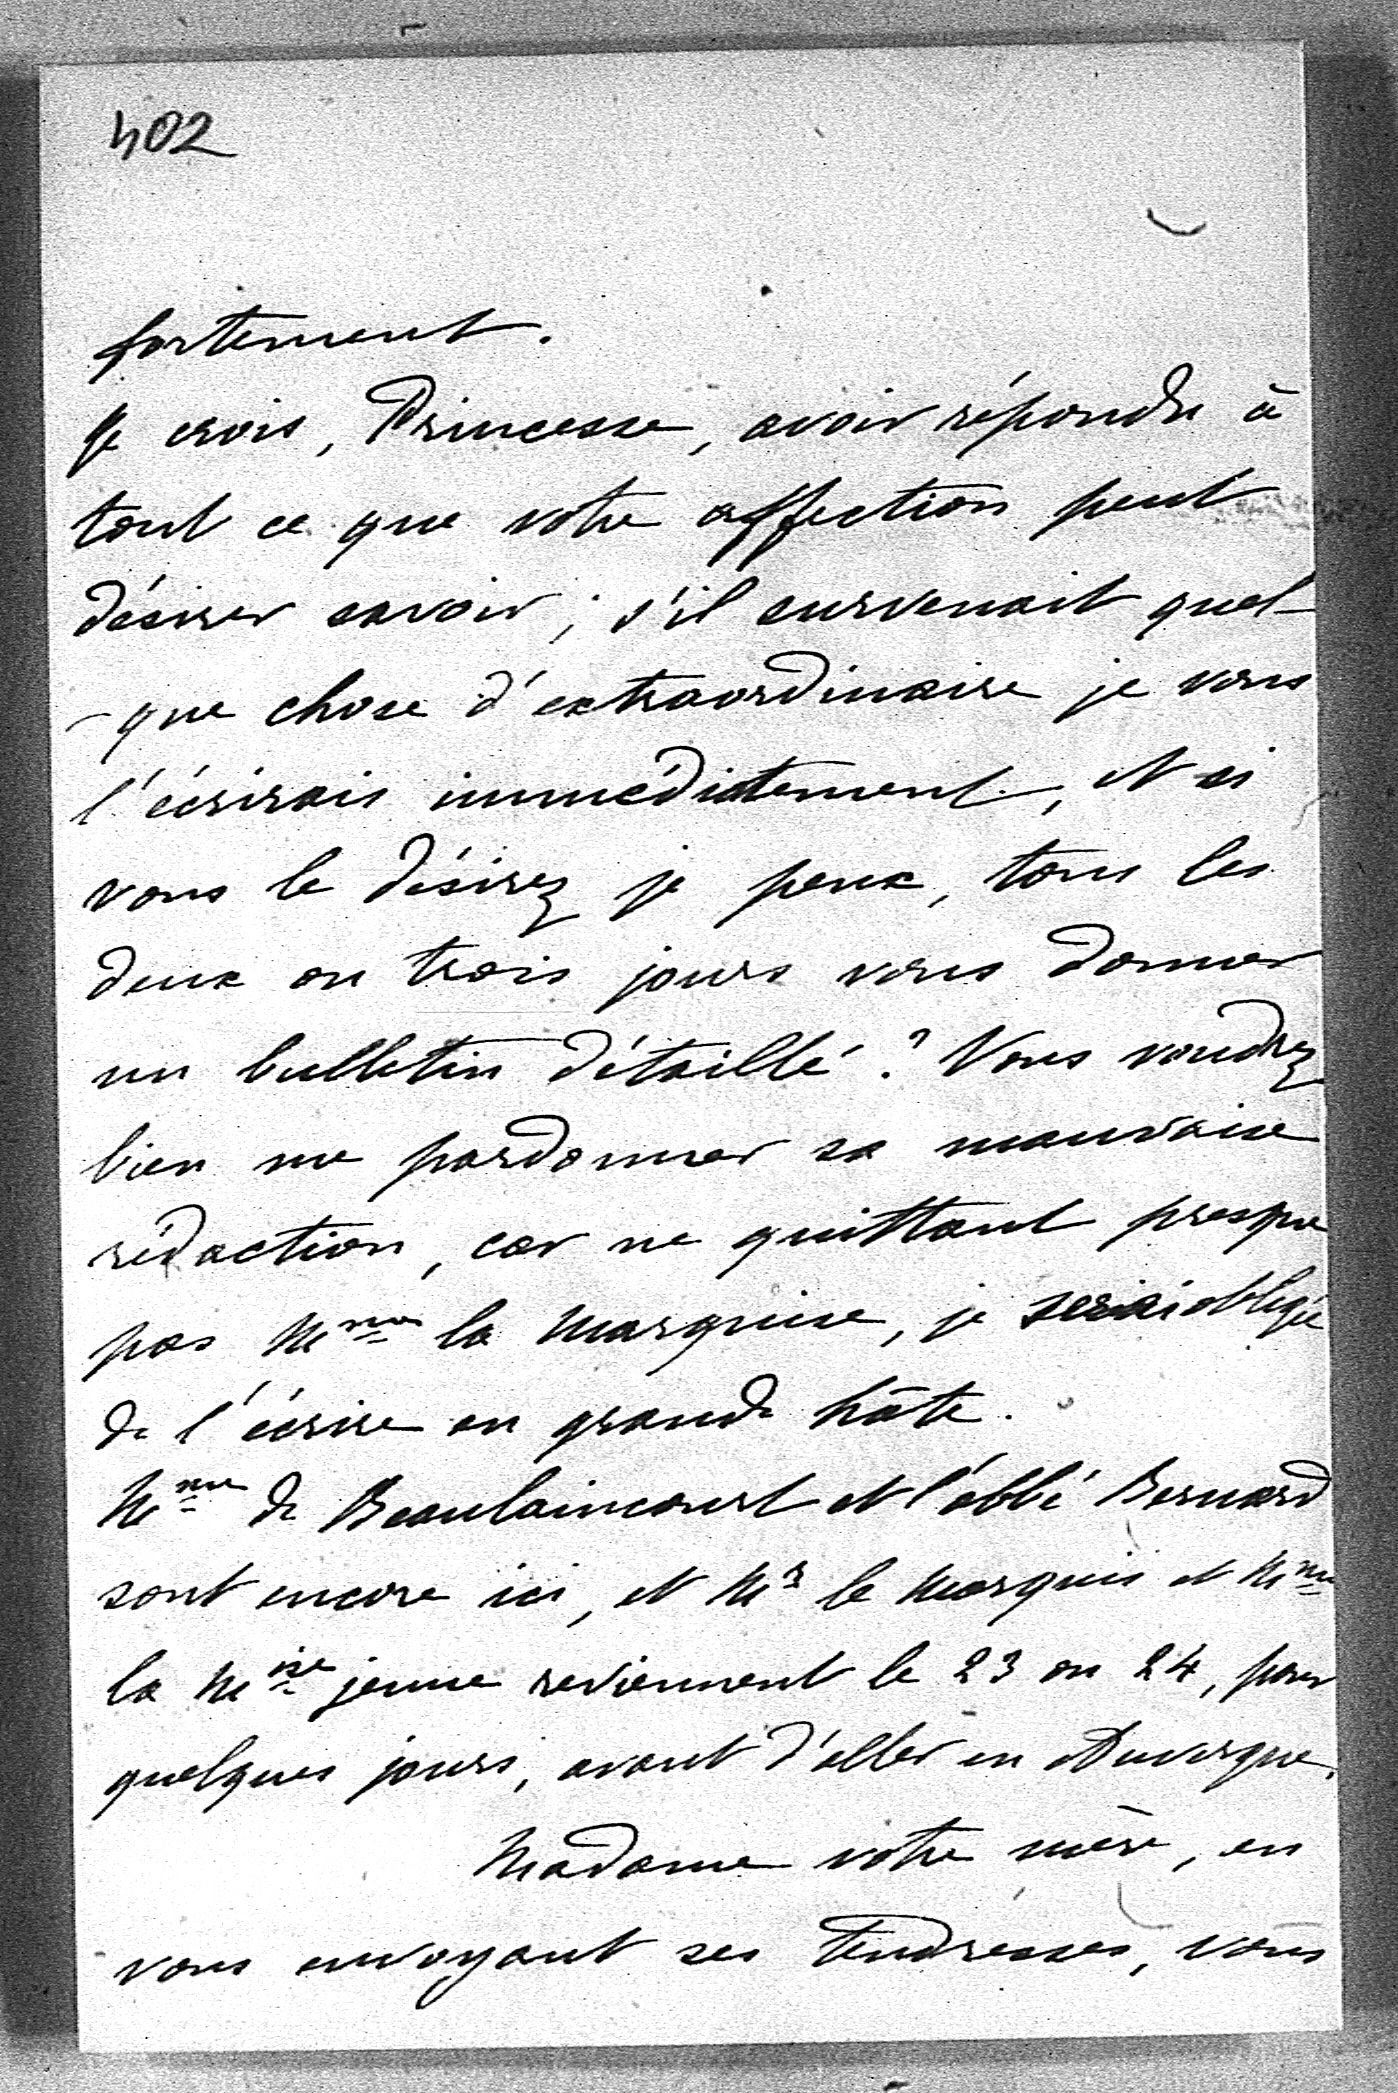 402
fortement.
Je crois, Princesse, avoir répondu à
tout ce que votre affection peut
désirer savoir ; s'il survenait quel-
-que chose d'extraordinaire je vous
l'écrirais immédiatement, et si
vous le désirez je peux, tous les
deux ou trois jours vous donner
un bulletin détaillé ? Vous voudrez
bien me pardonner sa mauvaise
rédaction, car ne quittant presque
pas Mme la Marquise, je serai obligée
de l'écrire en grande hâte.
Mme de Beaulaincourt et l'abbé Bernard
sont encore ici, et Mr le Marquis et Mme
la Mise jeune reviennent le 23 ou 24, pour
quelques jours, avant d'aller en Auvergne.
Madame votre mère, en
vous envoyant ses tendresses, vous